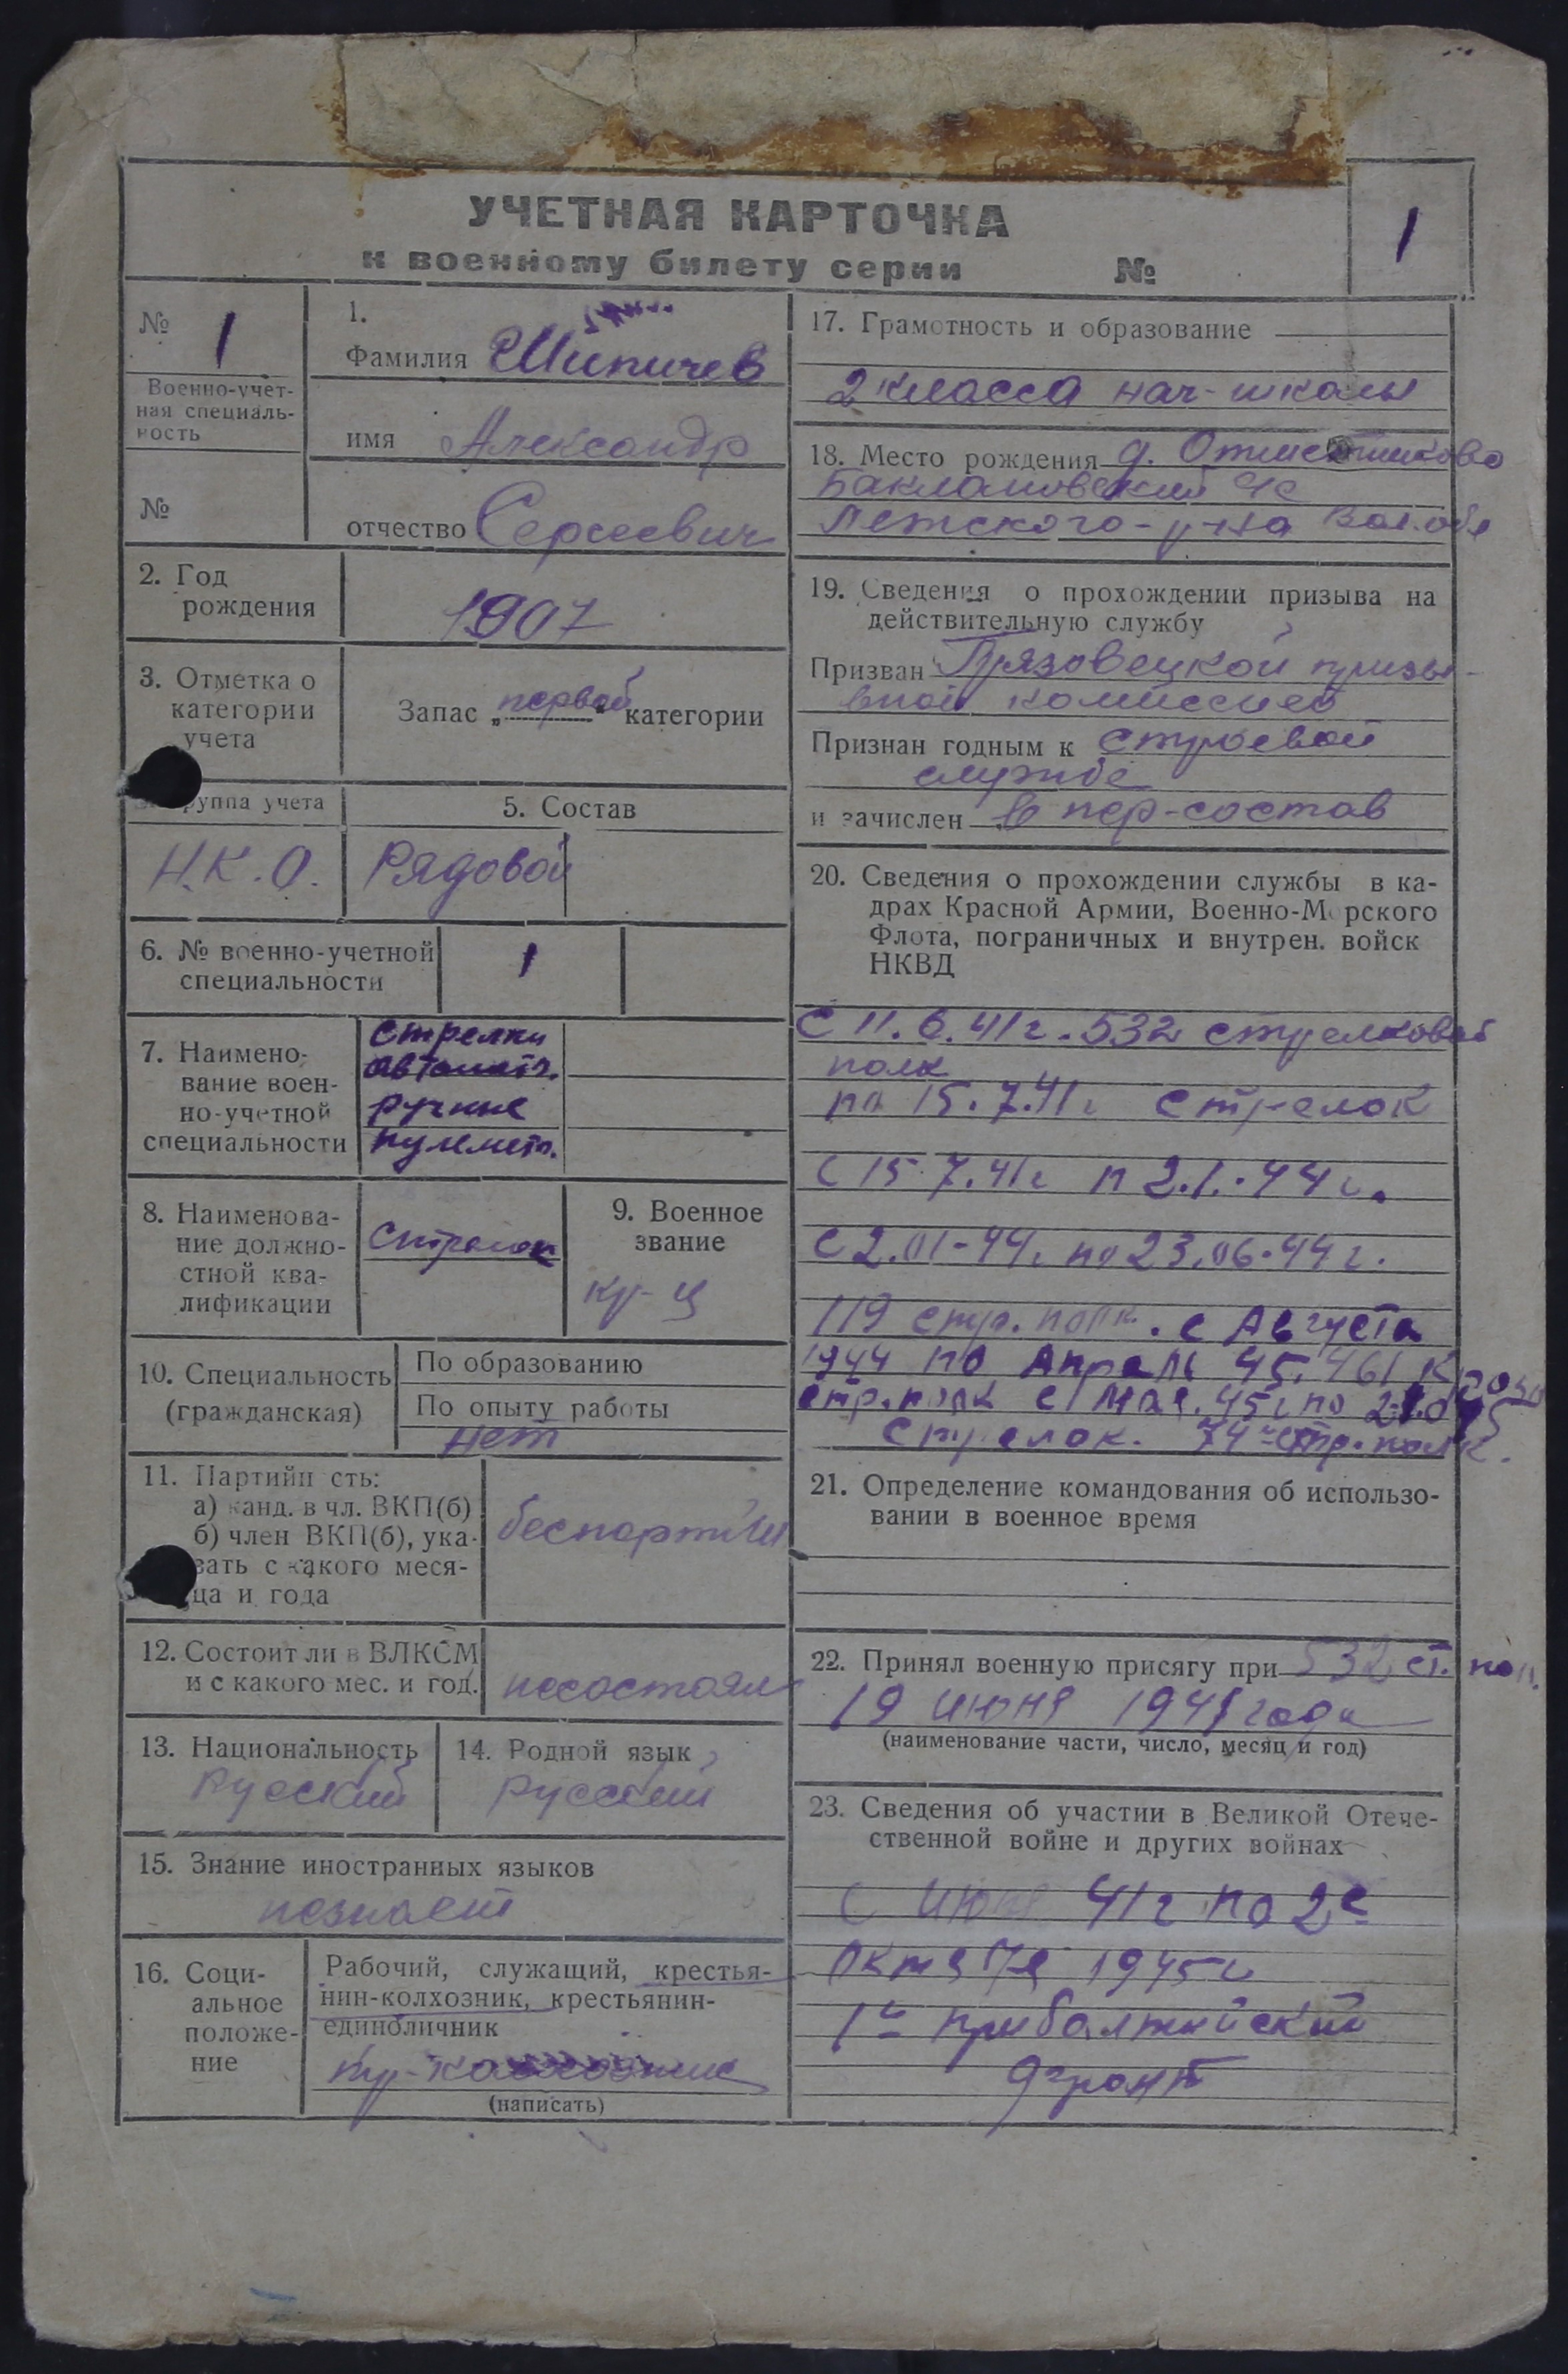 УЧЕТНАЯ КАРТОЧКА
к военному билету серии №
1
№ 1
Военно-учет-
ная специаль-
ность
№
1.
Фамилия Шипичев
имя Александр
отчество Сергеевич
2. Год
рождения
1907
3. Отметка о
категории
учета
Запас „первой“ категории
группа учета
Н.К.О.
5. Состав
Рядовой
6. № военно-учетной
специальности
1
7. Наимено-
вание воен-
но-учетной
специальности
стрелки
автоматч.
ручные
пулемет.
8. Наименова-
ние должно-
стной ква-
лификации
Стрелок
9. Военное
звание
кр-ц
10. Специальность
(гражданская)
По образованию
По опыту работы
нет
11. Партийн сть:
а) канд. в чл. ВКП(б)
б) член ВКП(б), ука-
зать с какого меся-
ца и года
беспартий
12. Состоит ли в ВЛКСМ
и с какого мес. и год.
несостоял
13. Национальность
Русский
14. Родной язык
русский
15. Знание иностранных языков
незнает
16. Соци-
альное
положе-
ние
Рабочий, служащий, крестья-
нин-колхозник, крестьянин-
единоличник
(написать)
17. Грамотность и образование
2 класса нач-школы
18. Место рождения д.
Баклановский с/с
Лежского р-на Вол. обл
19. Сведения о прохождении призыва на
действительную службу
Призван Грязовецкой призы-
вной комиссией
Признан годным к строевой
службе
и зачислен в пер-состав
20. Сведения о прохождении службы в ка-
драх Красной Армии, Военно-Морского
Флота, пограничных и внутрен. войск
НКВД
С 11.6.41г. 532 стрелковой
полк
по 15.7.41г стрелок
С 15.7.41г п 2.1.44г.
С 2.01-44. по 23.06.44г.
119 стр. полк. с Августа
1944 по Апрель 45. 461
стр. полк с Мая. 45г по
стрелок. 74й стр. полк.
21. Определение командования об использо-
вании в военное время
22. Принял военную присягу при 532 ст. пол.
19 июня 1941 года
(наименование части, число, месяц и год)
23. Сведения об участии в Великой Отече-
ственной войне и других войнах
С июня 41г по 2е
1945г
1й прибалтийский
фронт